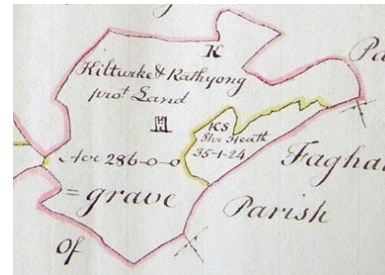 K
Kilturke & Rathyong
prot Land
H
KS
Heath
35-1-24
Acr 286-0-0
Fagha
=grave
Parish
Of
Pa